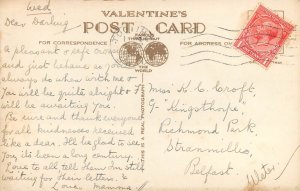 Wed
VALENTINE'S
POST CARD
Dear Darling
FOR CORRESPONDENCE
THROUGHOUT
THE WORLD
FOR ADDRESS ON
A pleasant & safe cross
and just behave as you
always do when with me &
You will be quite alright & I'll
be awaiting you.
Be sure and thank everyone
for all kindnesses received
like a dear. I'll be glad to see
you its been a long century.
Love to all tell them I'm still
waiting for their letters. &
Love. Mamma
THIS IS A REAL PHOTOGRAPH
Miss K. C. Croft,
9 Kingsthorpe,
Richmond Park,
Stranmillis,
Belfast.
Ulster